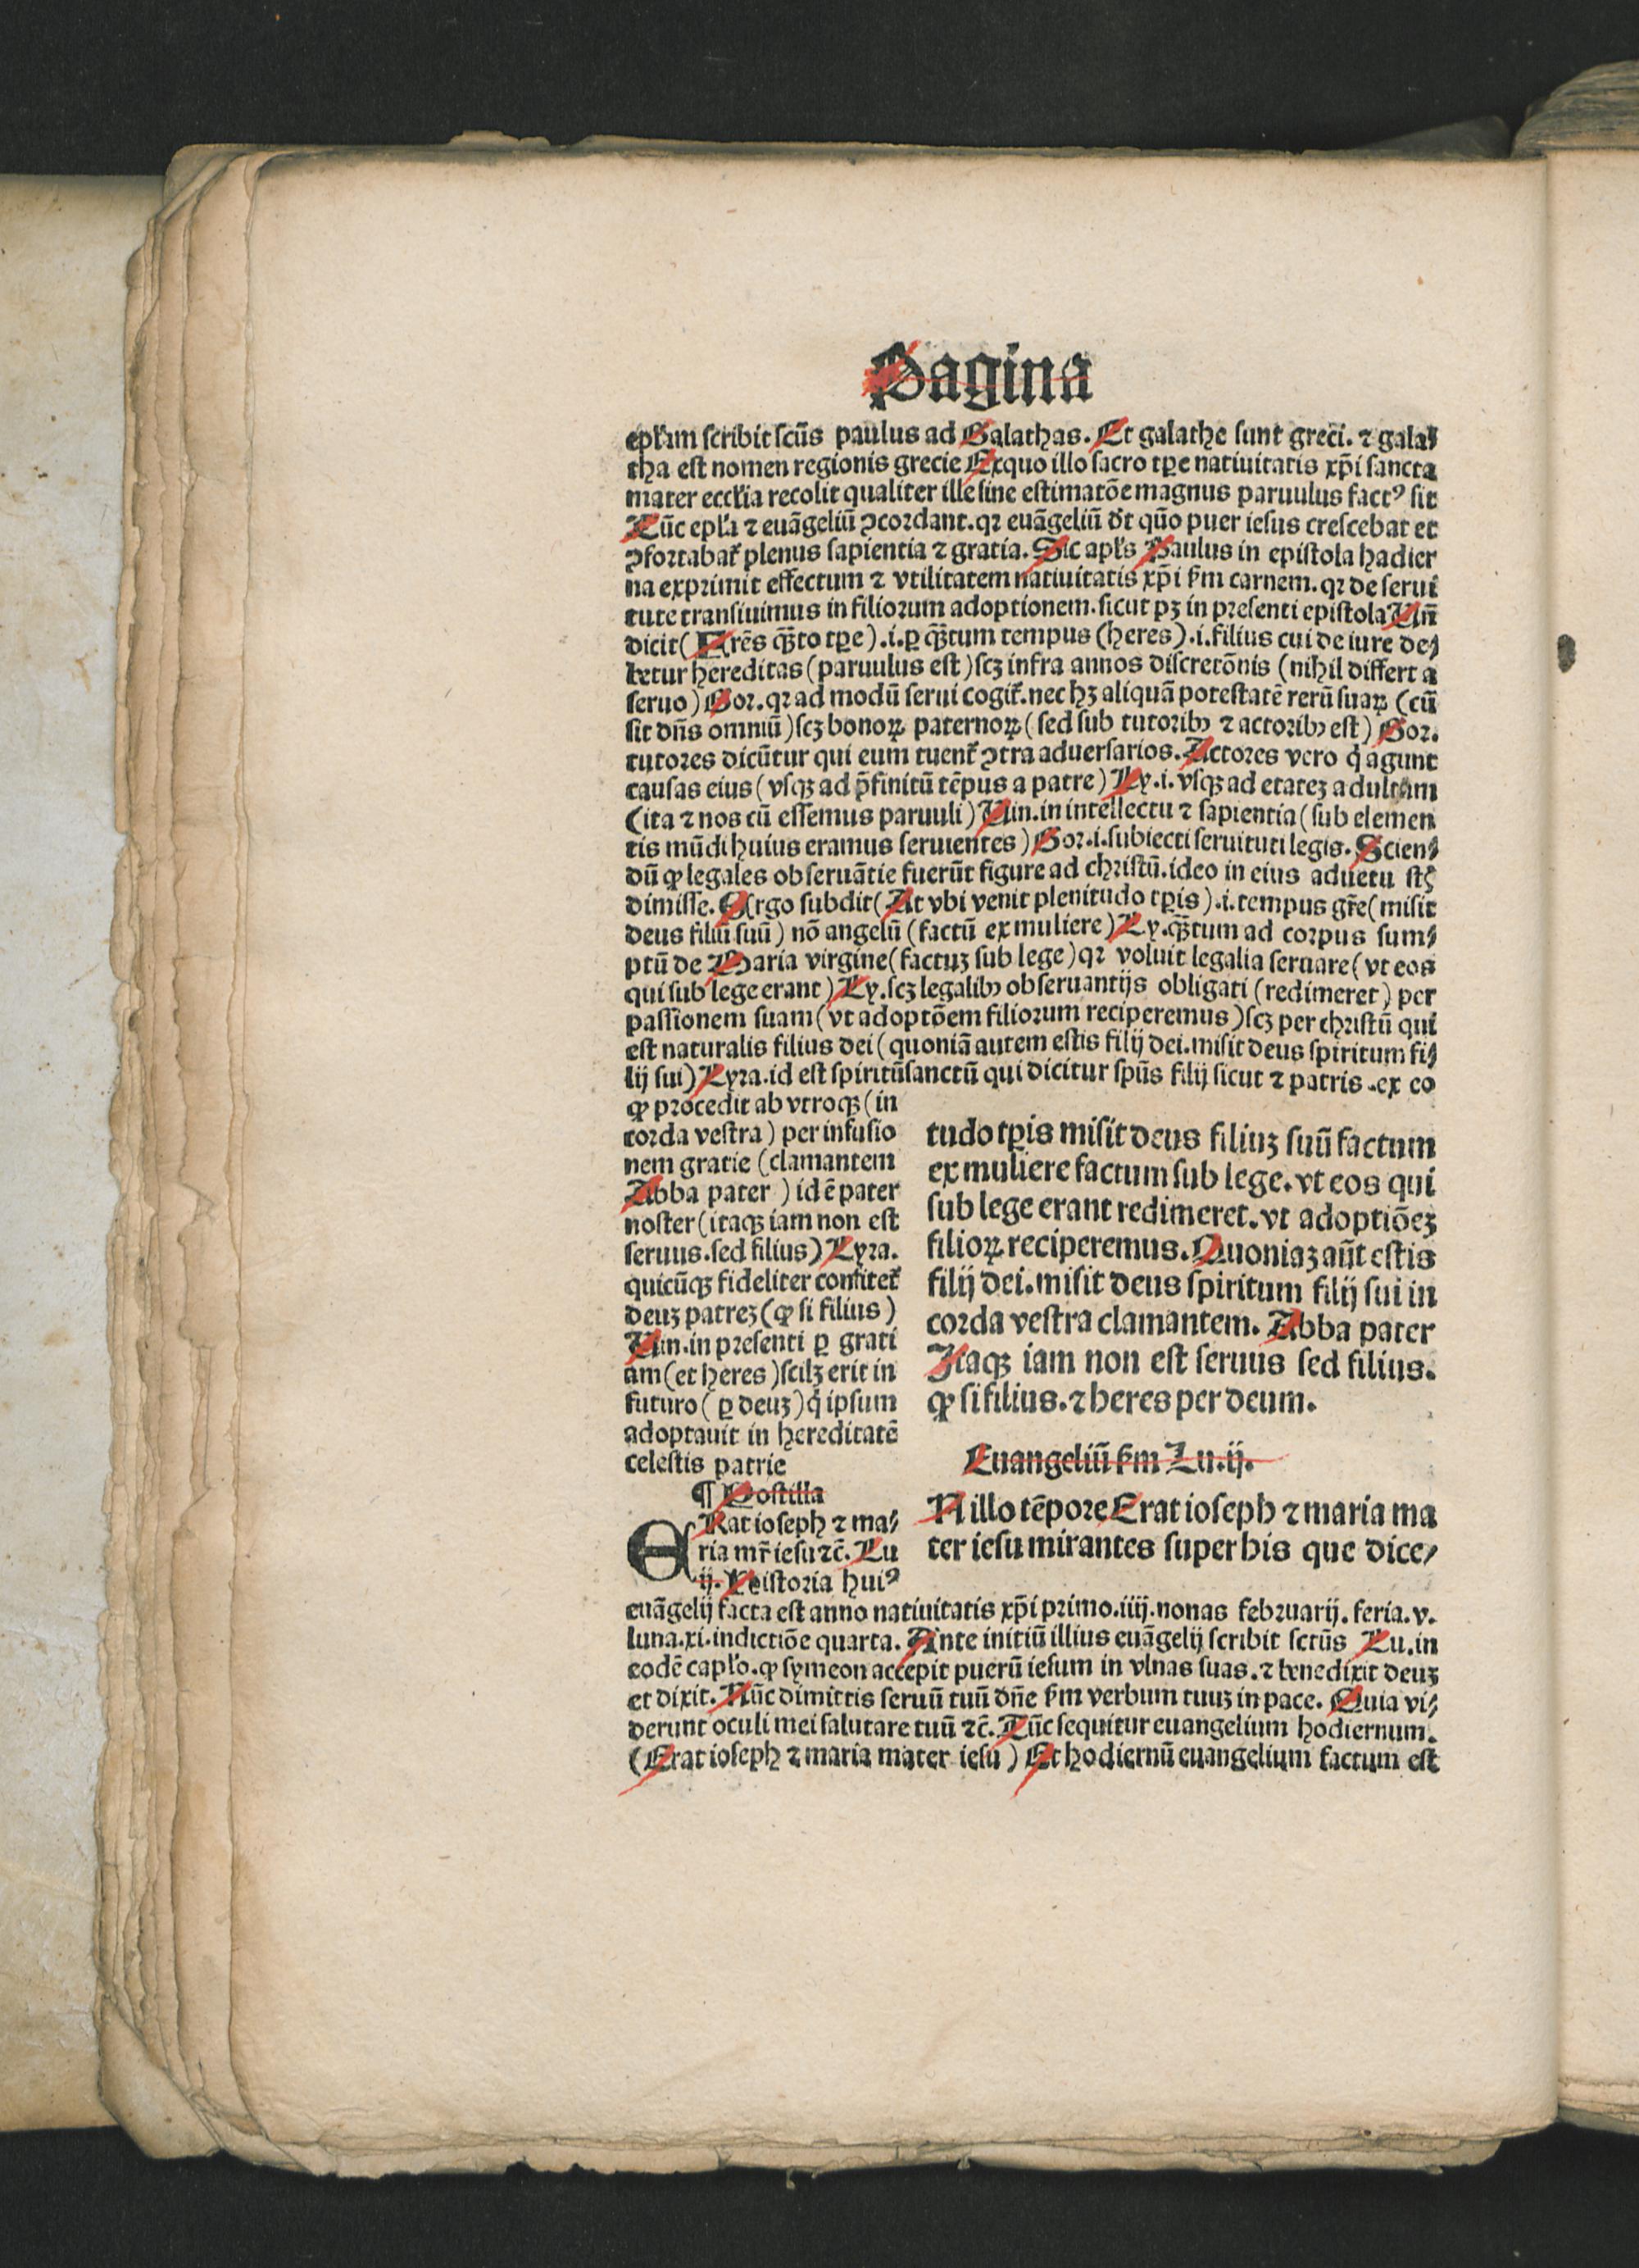 Pagina
epłam scribit scūs paulus ad Galathas. Et galathe sunt greci. ⁊ gala⸗
tha est nomen regionis grecie Exquo illo sacro tꝑe natiuitatis xp̄i sancta
mater eccłia recolit qualiter ille sine estimatōe magnus paruulus factꝰ sit
Tūc epła ⁊ euāgeliū ꝯcordant. qꝛ euāgeliū dt qūo puer iesus crescebat et
ꝯfortabat̃ plenus sapientia ⁊ gratia. Sic apłs Paulus in epistola hadier
na exprimit effectum ⁊ vtilitatem natiuitatis xp̄i ẜm carnem. qꝛ de serui
tute transiuimus in filiorum adoptionem. sicut pꝫ in presenti epistola Un̄
dicit (Frēs q̄ꝫto tꝑe) .i. ꝑ q̄ꝫtum tempus (heres) .i. filius cui de iure de⸗
betur hereditas (paruulus est) scꝫ infra annos discretōnis (nihil differt a
seruo) Gor. qꝛ ad modū serui cogit̃. nec hꝫ aliquā potestatē rerū suaꝝ (cū
sit dn̄s omniū) scꝫ bonoꝝ paternoꝝ (sed sub tutoribꝫ ⁊ actoribꝫ est) Gor.
tutores dicūtur qui eum tuent̃ ꝯtra aduersarios. Actores vero q̇ agunt
causas eius (vsqꝫ ad p̄finitū tēpus a patre) Ly. i. vsqꝫ ad etateꝫ adultam
(ita ⁊ nos cū essemus paruuli) Uin. in intellectu ⁊ sapientia (sub elemen
tis mūdi huius eramus seruientes) Gor. i. subiecti seruituti legis. Scien⸗
dū ꝙ legales obseruātie fuerūt figure ad christū. ideo in eius aduētu st̄
dimisse. Ergo subdit (At vbi venit plenitudo tꝑis) .i. tempus gr̄e (misit
deus filiū suū) nō angelū (factū ex muliere) Ly. q̄ꝫtum ad corpus sum⸗
ptū de Maria virgine (factuꝫ sub lege) qꝛ voluit legalia seruare (vt eos
qui sub lege erant) Ly. scꝫ legalibꝫ obseruantijs obligati (redimeret) per
passionem suam (vt adoptōem filiorum reciperemus) scꝫ per christū qui
est naturalis filius dei (quoniā autem estis filij dei. misit deus spiritum fi⸗
lij sui) Lyra. id est spiritūsanctū qui dicitur spūs filij sicut ⁊ patris. ex eo
ꝙ procedit ab vtroqꝫ (in
corda vestra) per infusio
nem gratie (clamantem
Abba pater) id ē pater
noster (itaqꝫ iam non est
seruus. sed filius) Lyra.
quicūqꝫ fideliter confitet̃
deuꝫ patreꝫ (ꝙ si filius)
Uin. in presenti ꝑ grati
am (et heres) scilꝫ erit in
futuro (ꝑ deuꝫ) q̇ ipsum
adoptauit in hereditatē
celestis patrie
¶ Postilla
ERat ioseph ⁊ ma⸗
ria mr̄ iesu ⁊c̄. Lu
ij. Historia huiꝰ
tudo tꝑis misit deus filiuꝫ suū factum
ex muliere factum sub lege. vt eos qui
sub lege erant redimeret. vt adoptiōeꝫ
filioꝝ reciperemus. Quoniaꝫ aūt estis
filij dei. misit deus spiritum filij sui in
corda vestra clamantem. Abba pater
Itaqꝫ iam non est seruus sed filius.
ꝙ si filius. ⁊ heres per deum.
Euangeliū ẜm Lu. ij.
N illo tēpore Erat ioseph ⁊ maria ma
ter iesu mirantes super his que dice⸗
euāgelij facta est anno natiuitatis xp̄i primo. iiij. nonas februarij. feria. v.
luna. xi. indictiōe quarta. Ante initiū illius euāgelij scribit sctūs Lu. in
eodē capło. ꝙ symeon accepit puerū iesum in vlnas suas. ⁊ benedixit deuꝫ
et dixit. Nūc dimittis seruū tuū dn̄e ẜm verbum tuuꝫ in pace. Quia vi⸗
derunt oculi mei salutare tuū ⁊c̄. Tūc sequitur euangelium hodiernum.
(Erat ioseph ⁊ maria mater iesu) Et hodiernū euangelium factum est